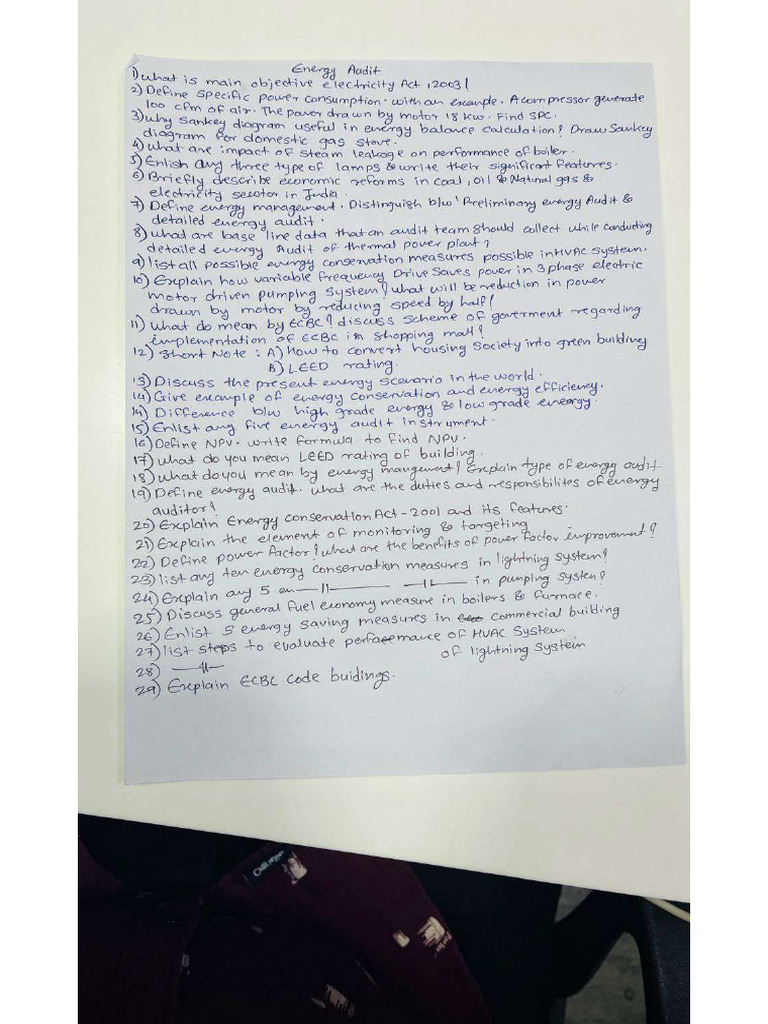 Energy Audit
1) what is main objective electricity Act, 2003?
2) Define Specific Power consumption. with an example. A compressor generate
100 cfm of air. The power drawn by motor 18 kw. Find SPC.
3) why sankey diagram useful in energy balance calculation? Draw Sankey
diagram for domestic gas stove.
4) what are impact of steam leakage on performance of boiler.
5) Enlish any three type of lamps & write their significant features.
6) Briefly describe economic reforms in coal, oil & Natural gas &
electricity secotor in India.
7) Define energy management. Distinguish b/w Preliminary energy Audit &
detailed energy audit.
8) what are base line data that an audit team should collect while conducting
detailed energy Audit of thermal power plant?
9) list all possible energy conservation measures possible in HVAC system.
10) Explain how variable frequency Drive saves power in 3 phase electric
motor driven pumping system? what will be reduction in power
drawn by motor by reducing speed by half?
11) what do mean by ECBC? discuss scheme of goverment regarding
implementation of ECBC in shopping mall?
12) Short Note : A) How to convert housing society into green building
B) LEED rating.
13) Discuss the present energy scenario in the world.
14) Give example of energy conservation and energy efficiency.
14) Difference b/w high grade energy & low grade energy.
15) Enlist any five energy audit instrument.
16) Define NPV. write formula to find NPV.
17) what do you mean LEED rating of building.
18) what do you mean by energy mangement? Explain type of energy audit.
19) Define energy audit. what are the duties and responsibilites of energy
auditor?
20) Explain Energy conservation Act - 2001 and its features.
21) Explain the element of monitoring & targeting
22) Define power factor? what are the benefits of power factor improvement?
23) list any ten energy conservation measures in lightning system?
24) Explain any 5 en —11— —11— in pumping system?
25) Discuss general fuel economy measure in boilers & furnace.
26) Enlist 5 energy saving measures in commercial building
27) list steps to evaluate performance of HVAC System
28) —11— of lightning system
29) Explain ECBC code buidings.
Chill